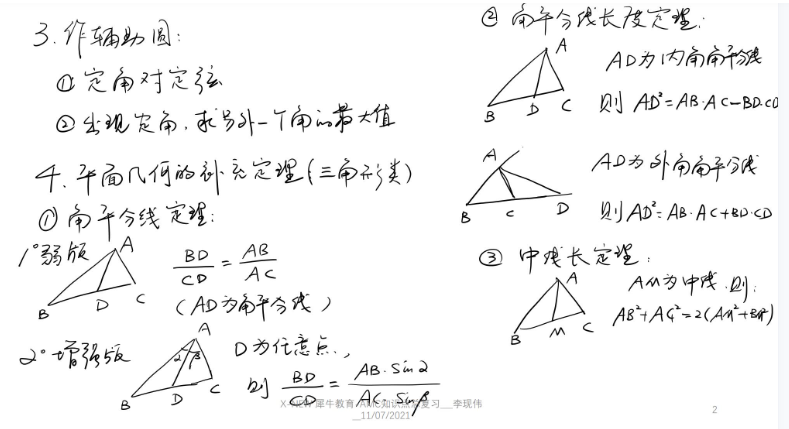 3. 作辅助圆:
① 定角对定弦
② 出现定角,求另外一个角的最大值
4. 平面几何的补充定理(三角形类)
① 角平分线定理:
1° 弱版
A
B
D
C
BD/CD = AB/AC
(AD为角平分线)
2° 增强版
A
α β
B
D
C
D为任意点,
则 BD/CD = AB·Sinα/AC·Sinβ
② 角平分线长度定理:
A
B
D
C
AD为内角角平分线
则 AD²=AB·AC-BD·CD
A
B
C
D
AD为外角角平分线
则 AD²=AB·AC+BD·CD
③ 中线长定理:
A
B
M
C
AM为中线,则:
AB²+AC²=2(AM²+BM²)
犀牛教育
知识点
复习__李现伟
__11/07/2021
2